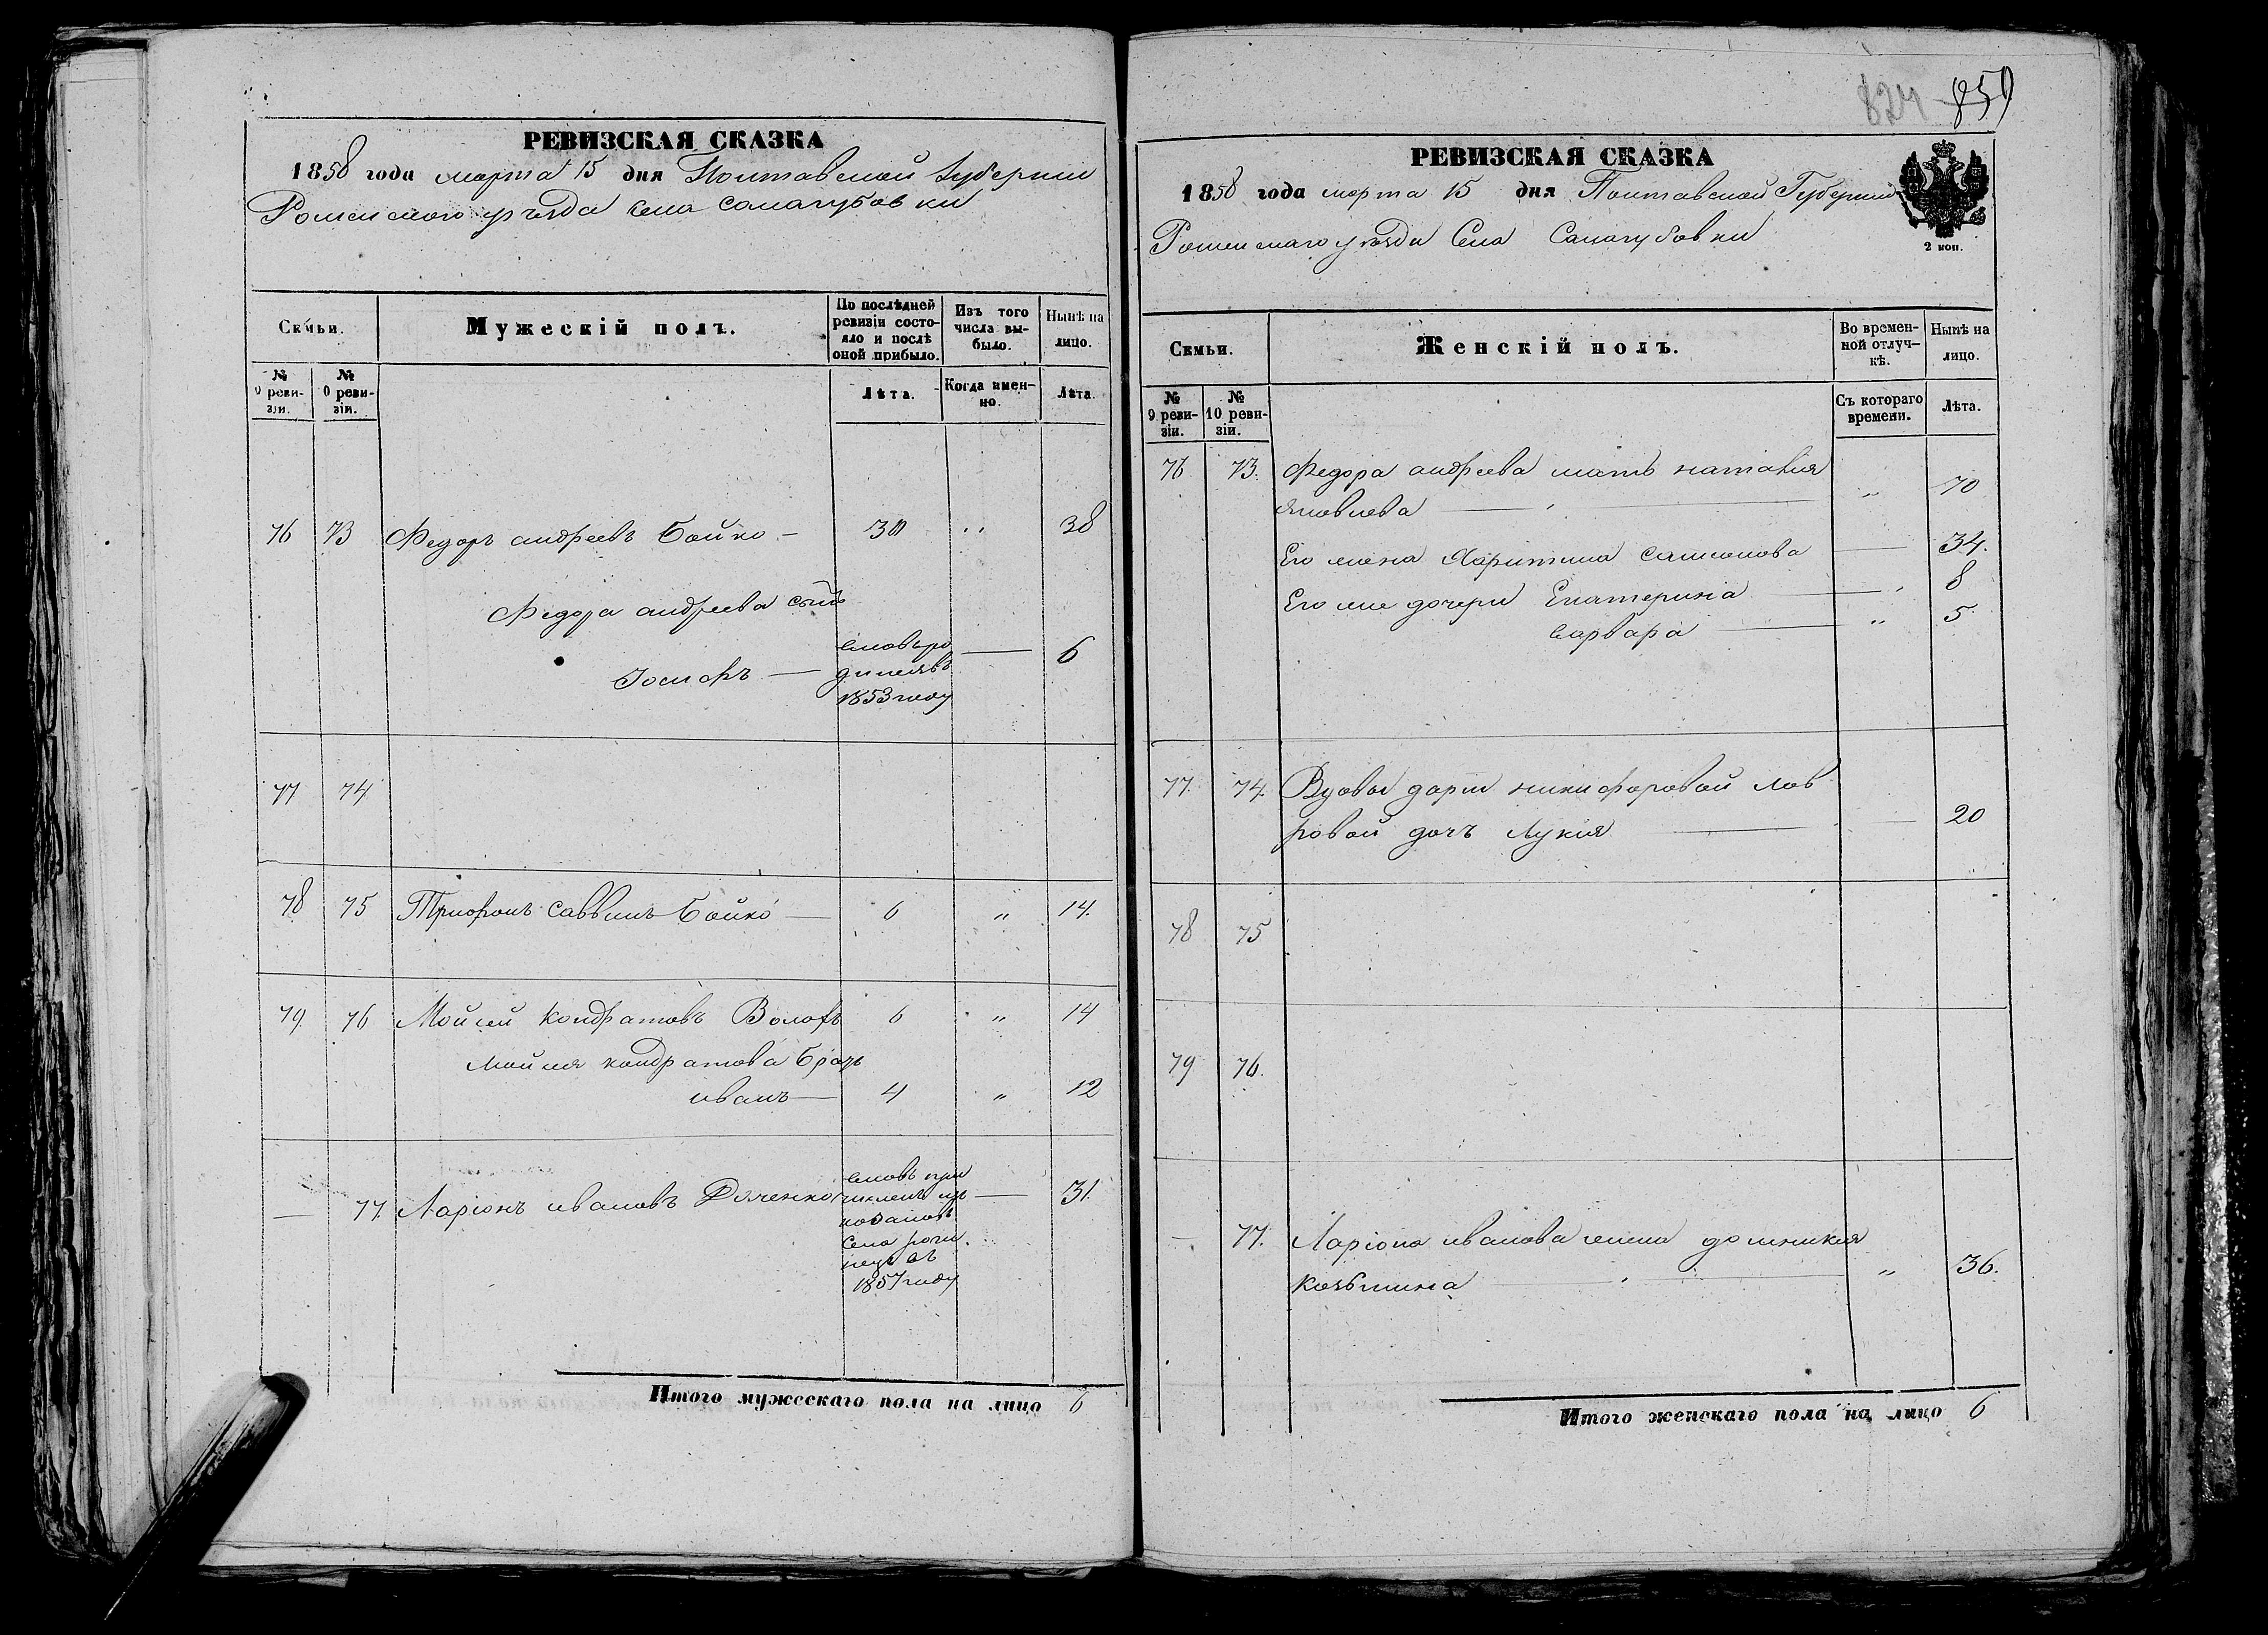 РЕВИЗСКАЯ СКАЗКА
1858 года марта 15 дня Полтавской губернии
Роменского уѣзда села Салогубовки
Семьи.
Мужескій полъ.
По послѣдней ревизіи состояло и послѣ оной прибыло.
Изъ того числа выбыло.
Нынѣ на лицо.
№ 9 ревизіи.
№ 0 ревизіи.
Лѣта.
Когда именно.
Лѣта.
76 73 Федоръ андреевъ Бойко 30 „ 38
Федора андреева сынъ
Іосифъ — вновьро
дился въ
1853 году — 6
77 74
78 75 Трифонъ саввинъ Бойко — 6 „ 14.
79. 76 Мойсей кондратовъ Волохъ 6 „ 14
Мойсея кондратова братъ
иванъ — 4 „ 12
— 77. Ларіонъ ивановъ вновь при
численъ изъ
козаковъ
села
въ
1857 году — 31.
Итого мужескаго пола на лицо 6
824 859
РЕВИЗСКАЯ СКАЗКА
1858 года марта 15 дня Полтавской Губернии
Роменскаго уѣзда Села Салогубовки
2 коп.
Семьи.
Женскій полъ.
Во временной отлучкѣ.
Нынѣ на лицо.
№ 9 ревизіи.
№ 10 ревизіи.
Съ котораго времени.
Лѣта.
76 73. Федора андреева мать наталия
яковлева — „ 70
Его жена Харитина самсонова — 34.
Его же дочери Екатерина — „ 8
варвара — „ 5
77. 74. Вдовы дарии никифоровой лав
ровой дочъ Лукія — 20
78 75
79 76.
— 77. Ларіона иванова жена домникия
козьмина — „ 36.
Итого женскаго пола на лицо 6